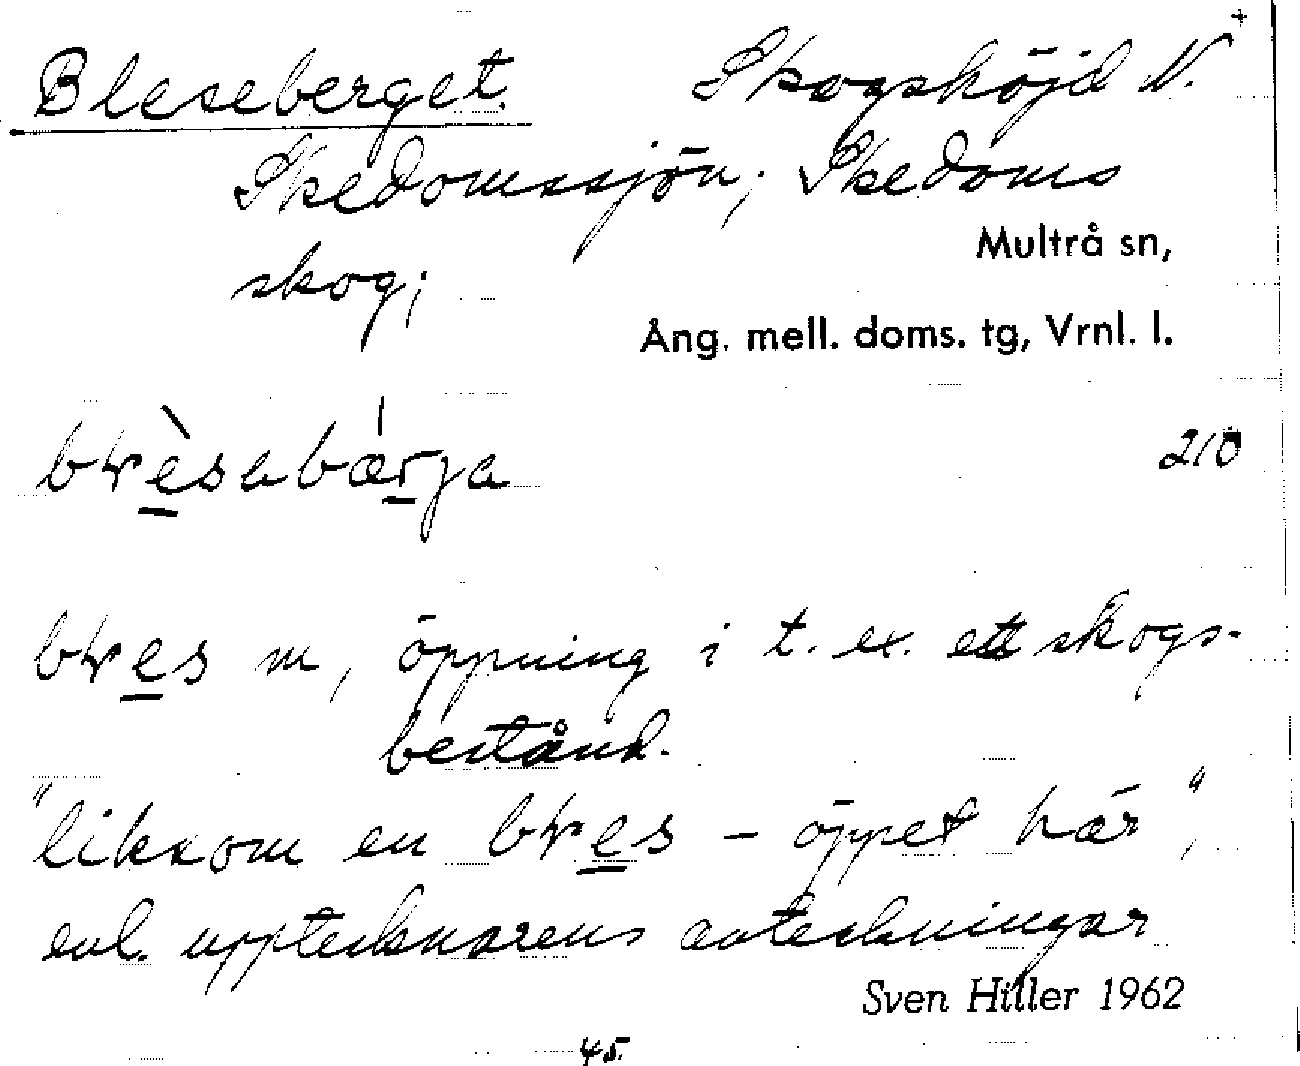 Bleseberget. Skogshöjd N. +
Skedomssjön; Skedoms
skog;
Multrå sn,
Ång. mell. doms. tg, Vrnl. l.
210
m, öppning i t. ex. ett skogs-
bestånd.
"liksom en – öppet här",
enl. upptecknarens anteckningar
Sven Hiller 1962
45.